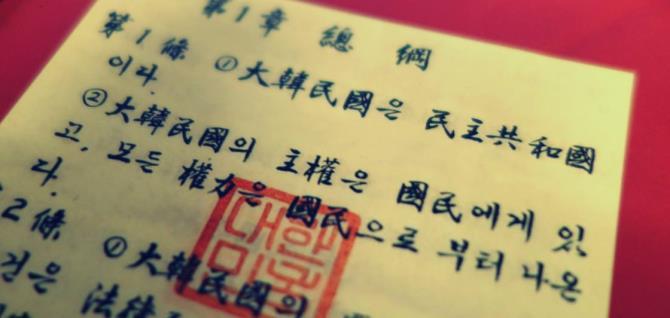 第1章 總綱
第1條 ①大韓民國은 民主共和國
이다.
②大韓民國의 主權은 國民에게 있
고, 모든 權力은 國民으로 부터 나온
다.
2條 ①大韓民國의
건은 法律
대한민국